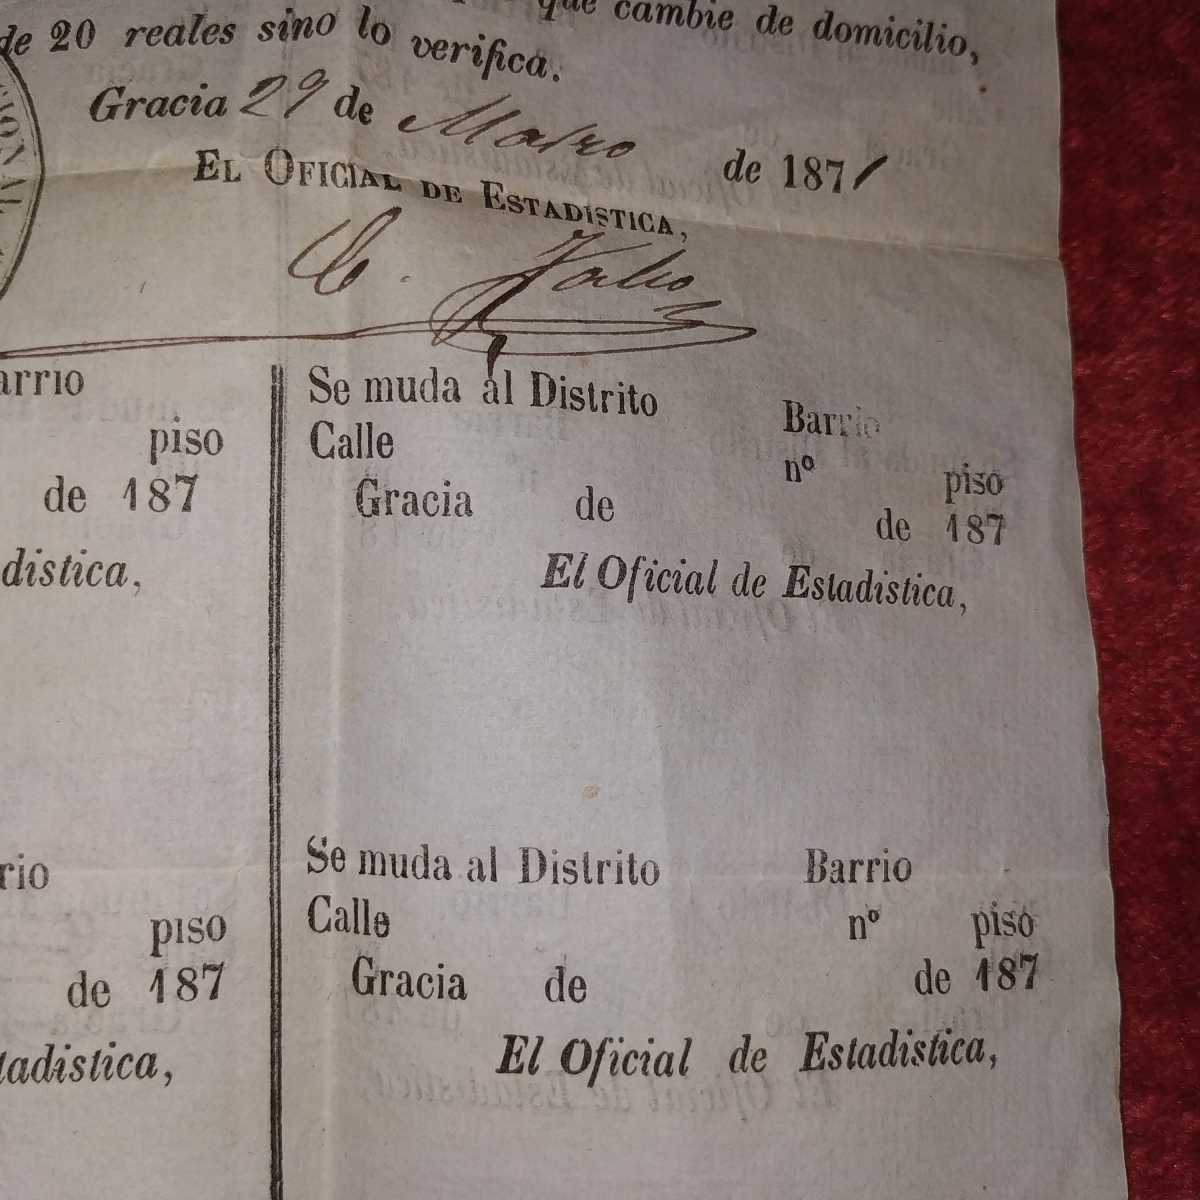 que cambie de domicilio,
de 20 reales sino lo verifica.
Gracia 29 de Marzo de 1871
EL OFICIAL DE ESTADISTICA,
arrio
piso
de 187
distica,
Se muda al Distrito Barrio
Calle nº piso
Gracia de de 187
El Oficial de Estadistica,
rio
piso
de 187
tadistica,
Se muda al Distrito Barrio
Calle nº piso
Gracia de de 187
El Oficial de Estadistica,